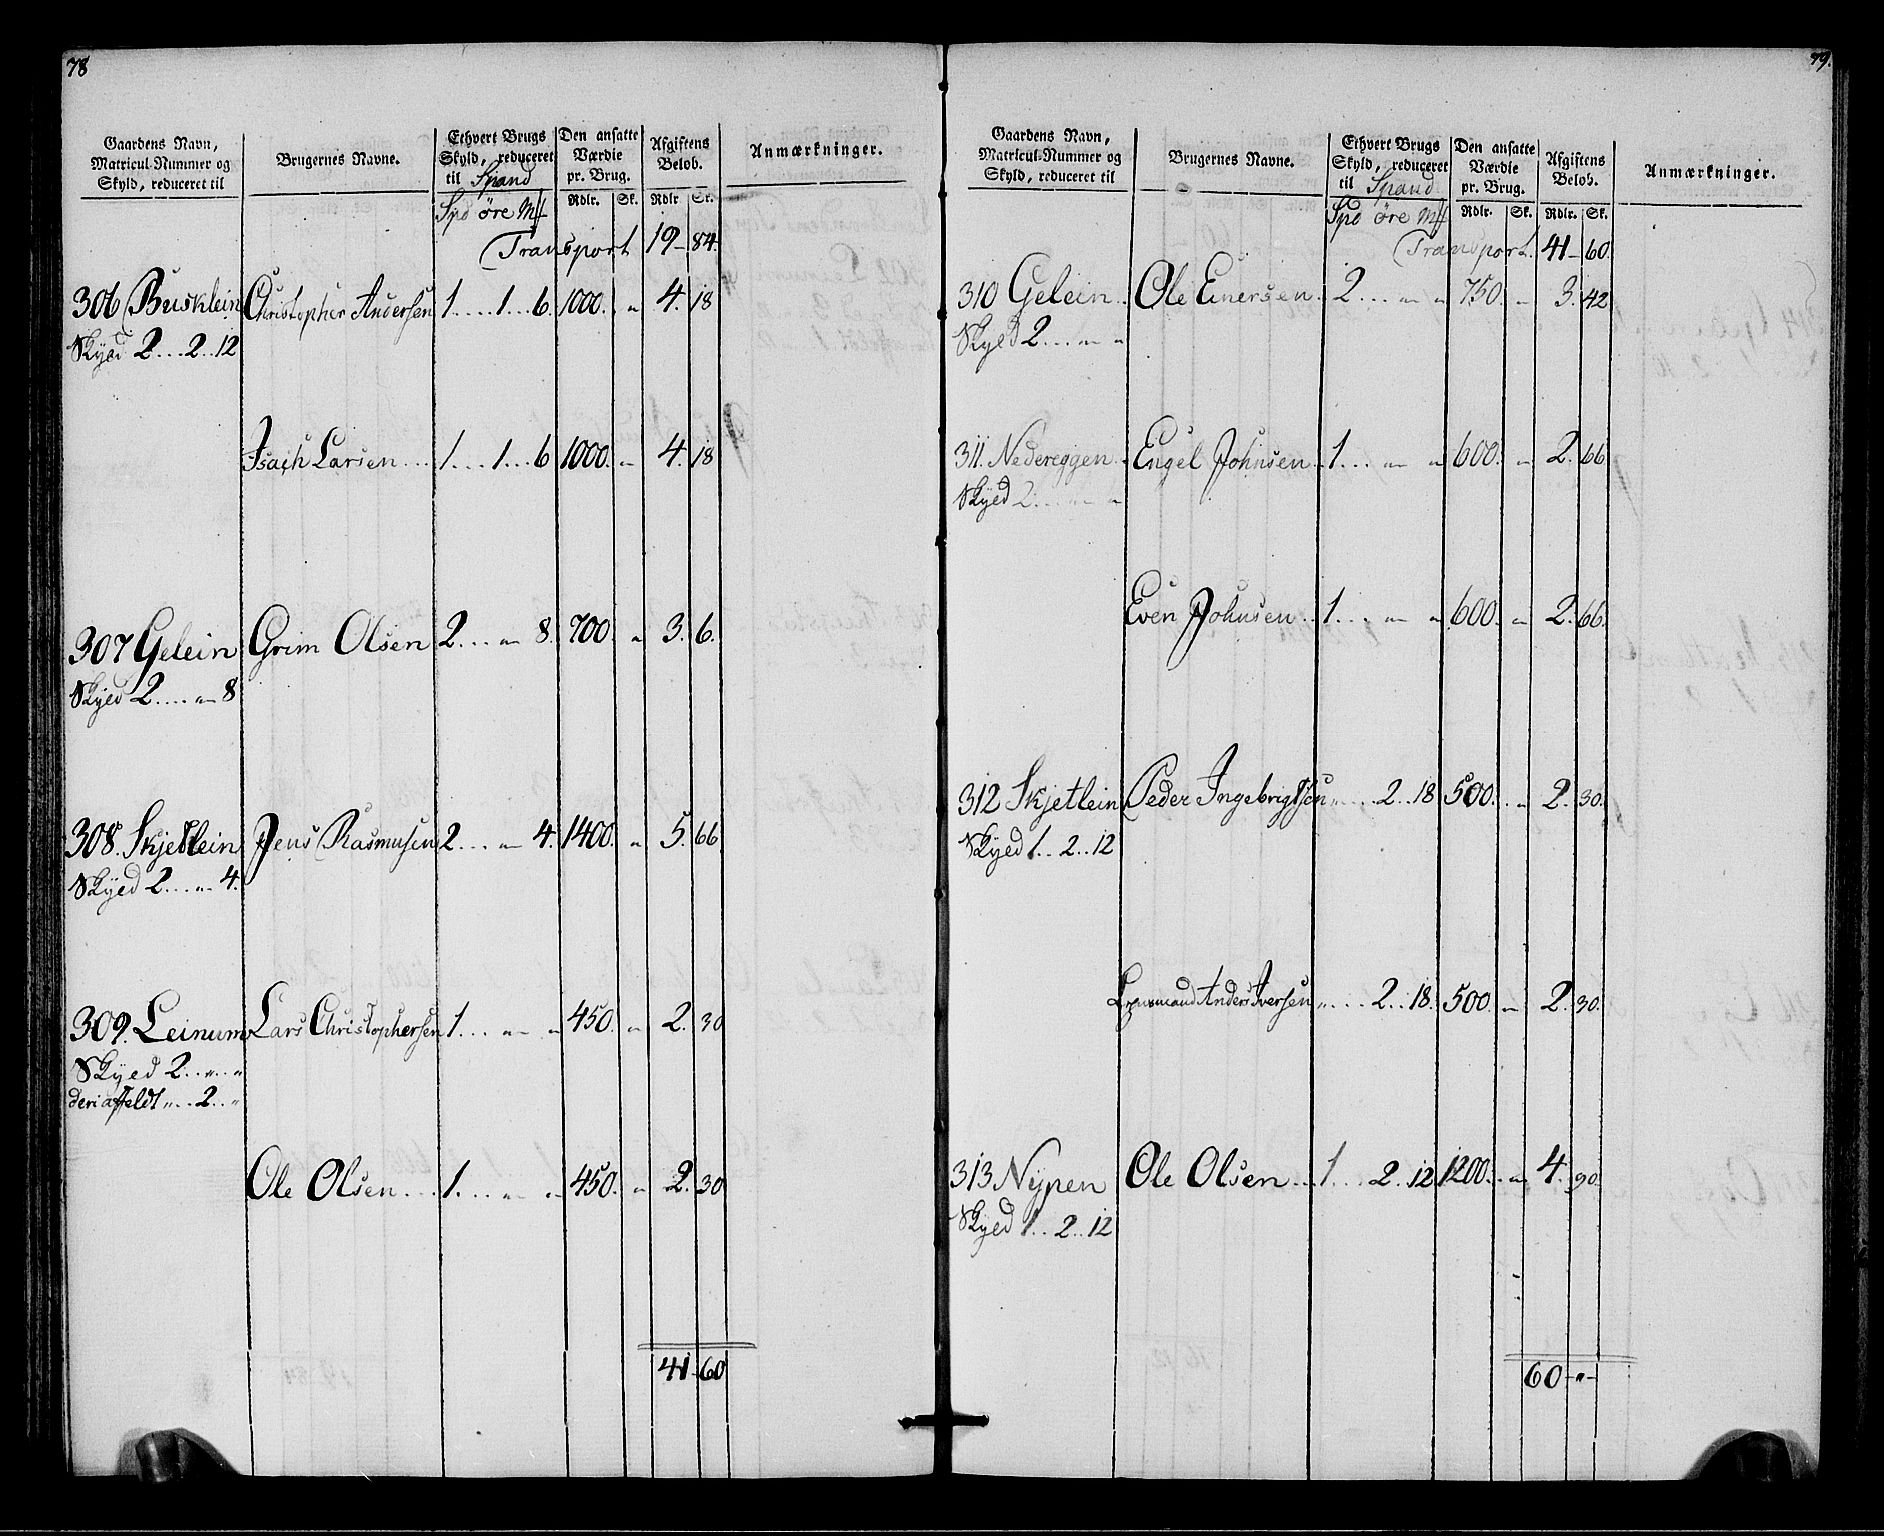 78
Gaardens Navn, Matricul-Nummer og Skyld, reduceret til | Brugernes Navne. | Ethvert Brugs Skyld, reduceret til Spand | Den ansatte Værdie pr. Brug. | Afgiftens Beløb. | Anmærkninger.
Spd øre Mf | Rdlr. | Sk. | Rdlr | Sk.
Transport 19 - 84.
306 Busklein Christopher Andersen 1....1...6. 1000. „ 4. 18
Skyed 2...2..12
Isach Larsen... 1....1...6 1000. „ 4. 18
307 Gelein Grim Olsen 2... „ 8. 700. „ 3. 6.
Skyed 2.... „ 8
308. Skjetlein Jens Rasmusen 2... „ 4. 1400. „ 5. 66.
Skyed 2... „ 4.
309. Leinum Lars Christophersen 1... „ „ 450. „ 2. 30
Skyed 2.. „ „
2.. „
Ole Olsen... 1.... „ „ 450. „ 2. 30
41 - 60
79.
Gaardens Navn, Matricul-Nummer og Skyld, reduceret til | Brugernes Navne. | Ethvert Brugs Skyld, reduceret til Spand | Den ansatte Værdie pr. Brug. | Afgiftens Beløb. | Anmærkninger.
Spd øre Mf | Rdlr. | Sk. | Rdlr. | Sk.
Transport. 41 - 60.
310 Gelein.. Ole Einersen.. 2... „ „ 750. „ 3. 42
Skyed 2... „ „
311. Nedereggen. Engel Johnsen.. 1... „ „ 600. „ 2. 66
Skyed 2... „ „
Even Johnsen.. 1... „ „ 600. „ 2. 66.
312 Skjetlein Peder Ingebrigtsen „....2..18 500. „ 2. 30.
Skyed 1..2..12
Lensmand Anders Iversen „....2..18. 500. „ 2. 30.
313 Nypen Ole Olsen... 1....2..12 1200. „ 4. 90.
Skyed 1..2..12
60 - „ -